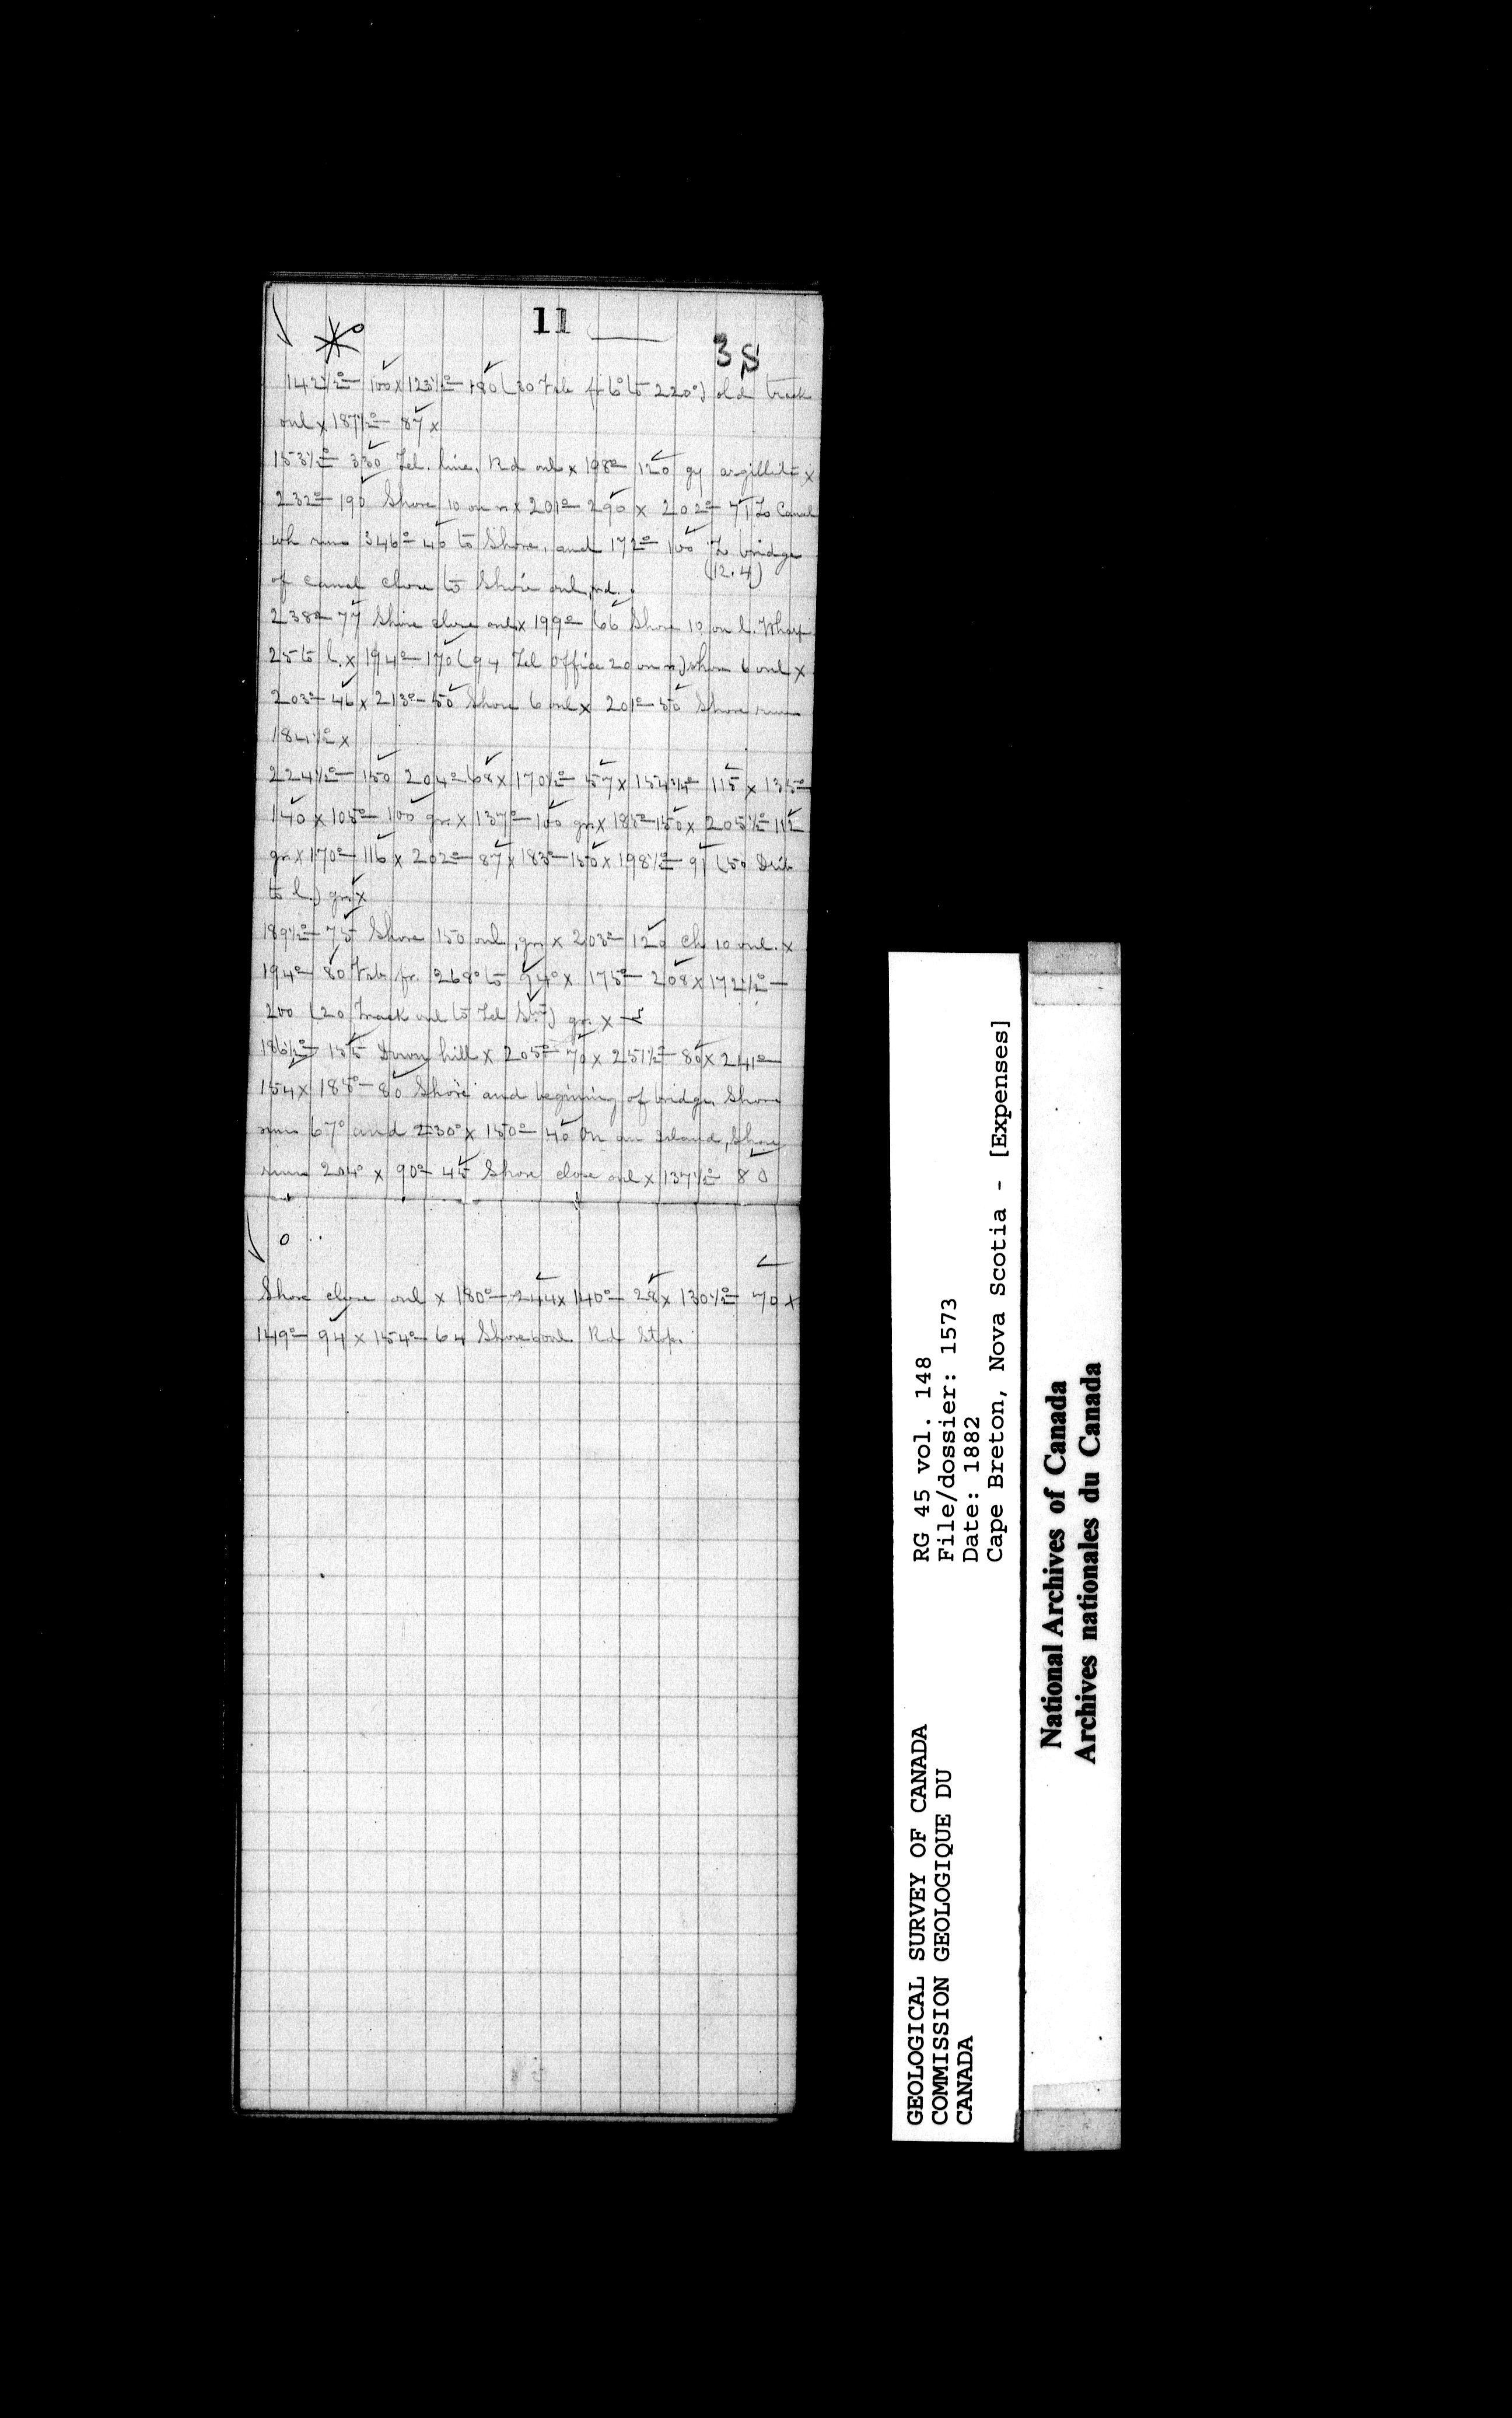 11
3S
142½°– 100 x 123½°– 180 (30 Tele fr 6° to 220°) old track
onl x 187½°– 87 x
153½°– 330 Tel. line, Rd onl x 198°– 120 gy argillite x
232°– 190 Shore 10 on r x 201°– 290 x 202°– 71 To Canal
wh runs 346°– 40 to Shore, and 172°– 100 To bridge
(12.4)
of canal close to Shore onl, rd.
238°– 77 Shore close onl x 199°– 66 Shore 10 on l. Wharf
25 to l. x 194°– 170 (94 Tel Office 20 on r) shore 6 onl x
203°– 46 x 213°– 50 Shore 6 onl x 201°– 50 Shore runs
184½° x
224½°– 150 204°– 68 x 170½°– 57 x 154¾°– 115 x 135°–
140 x 105°– 100 gr. x 137°– 100 gr x 185°– 150 x 205½°– 112
gr x 170°– 116 x 202°– 87 x 183°– 150 x 198½°– 91 (50
to l.) gr. x
189½°– 75 Shore 150 onl, gr x 203°– 120 ch 10 onl. x
194°– 80 fr. 268° to 94° x 175°– 208 x 172½°–
200 (20 Track onl to Tel Stn) gr. x
186½°– 155 Down hill x 205°– 70 x 251½°– 80 x 241°–
154 x 188°– 80 Shore and beginning of bridge. Shore
runs 67° and 230° x 150°– 40 On an Island, Shore
runs 204° x 90°– 45 Shore close onl x 137½°– 80
Shore close onl x 180°– 244 x 140°– 28 x 130½°– 70 x
149°– 94 x 154°– 64 Shore onl Rd Stop.
GEOLOGICAL SURVEY OF CANADA
COMMISSION GEOLOGIQUE DU
CANADA
RG 45 vol. 148
File/dossier: 1573
Date: 1882
Cape Breton, Nova Scotia - [Expenses]
National Archives of Canada
Archives nationales du Canada